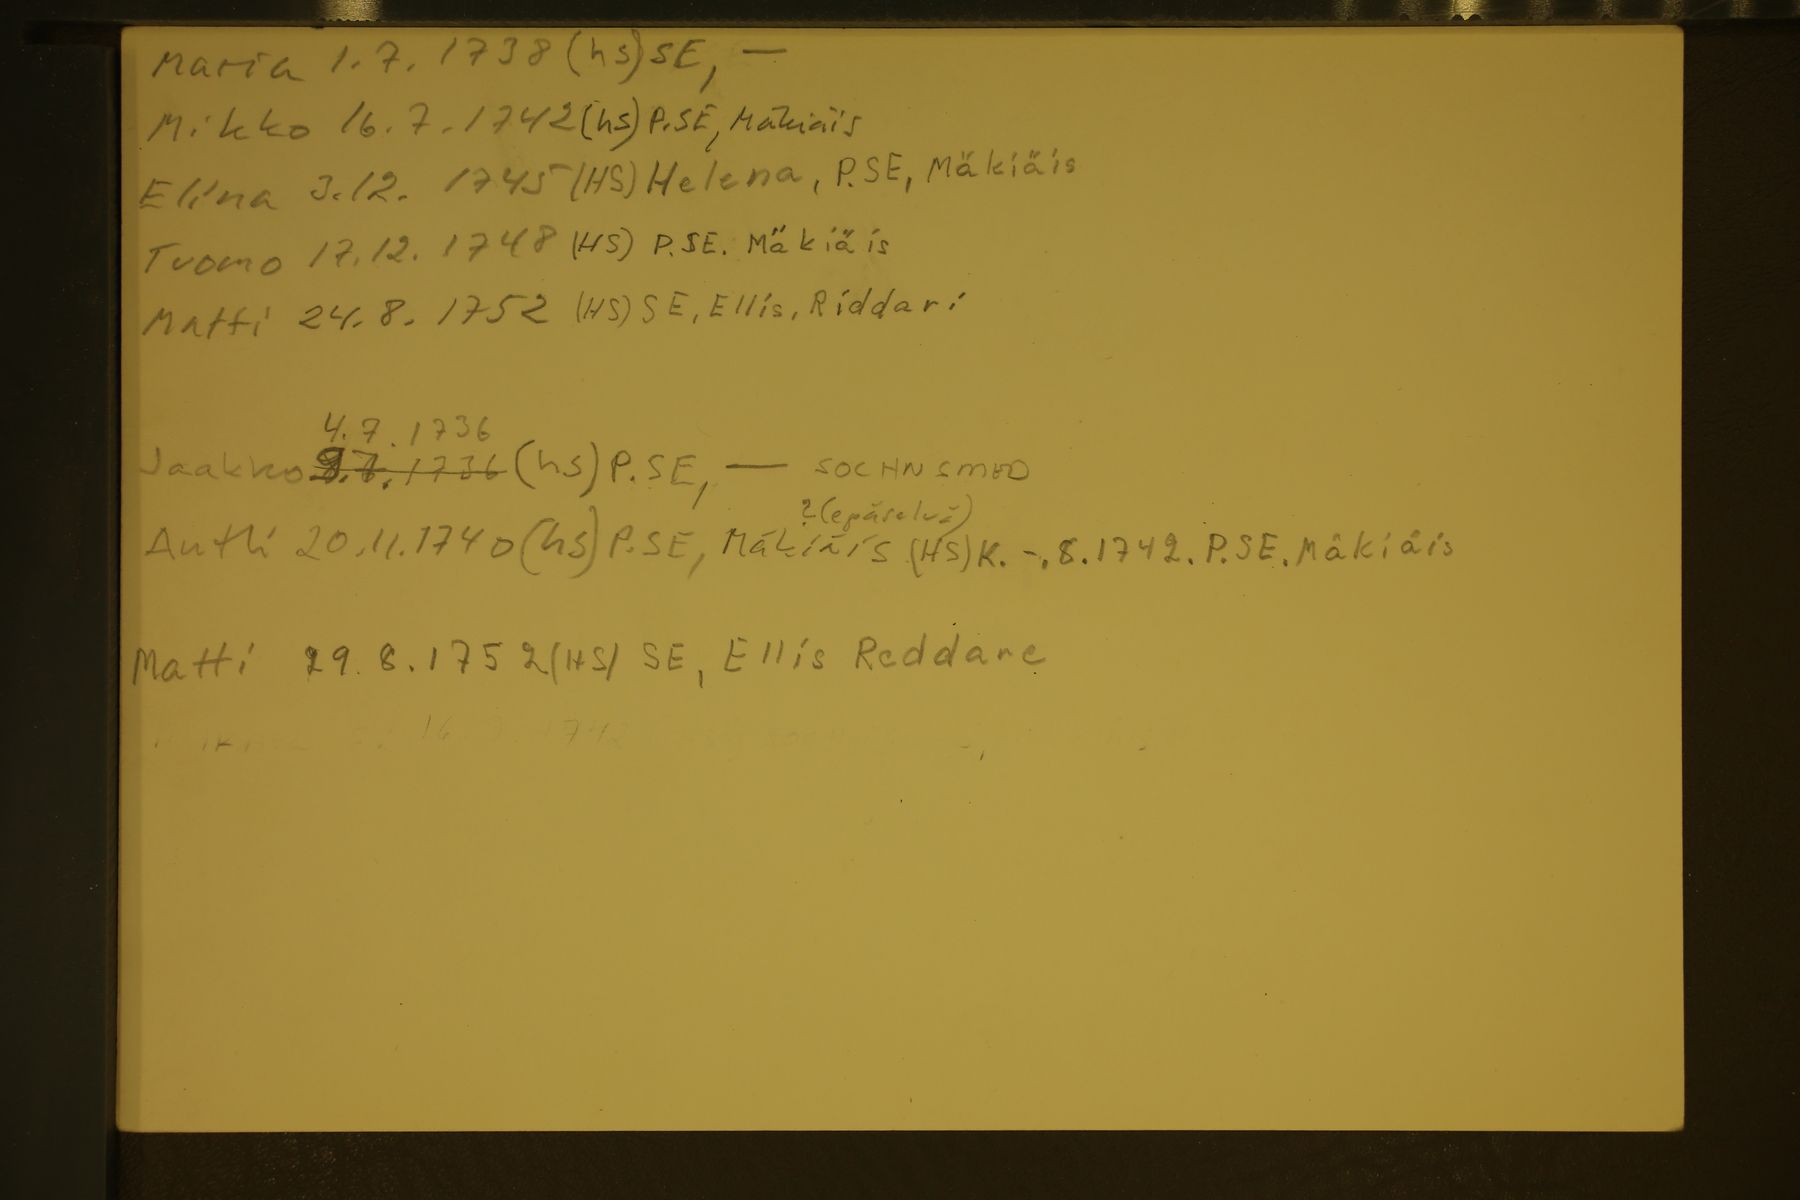 Maria 1.7.1738 (hs) SE, —
Mikko 16.7.1742 (hs) P.SE, Mäkiäis
Elina 3.12. 1745 (HS) Helena, P.SE, Mäkiäis
Tuomo 17.12.1748 (HS) P.SE. Mäkiäis
Matti 24.8.1752 (HS) SE, Ellis, Riddari
4.7.1736
Jaakko 9.7.1736 (hs) P.SE, — SOCHNSMED
? (epäselvä)
Antti 20.11.1740 (hs) P.SE, Mäkiäis (HS) K. -.8.1742. P.SE. Mäkiäis
Matti 29.8.1752 (HS) SE, Ellis Reddare
16.7.1742